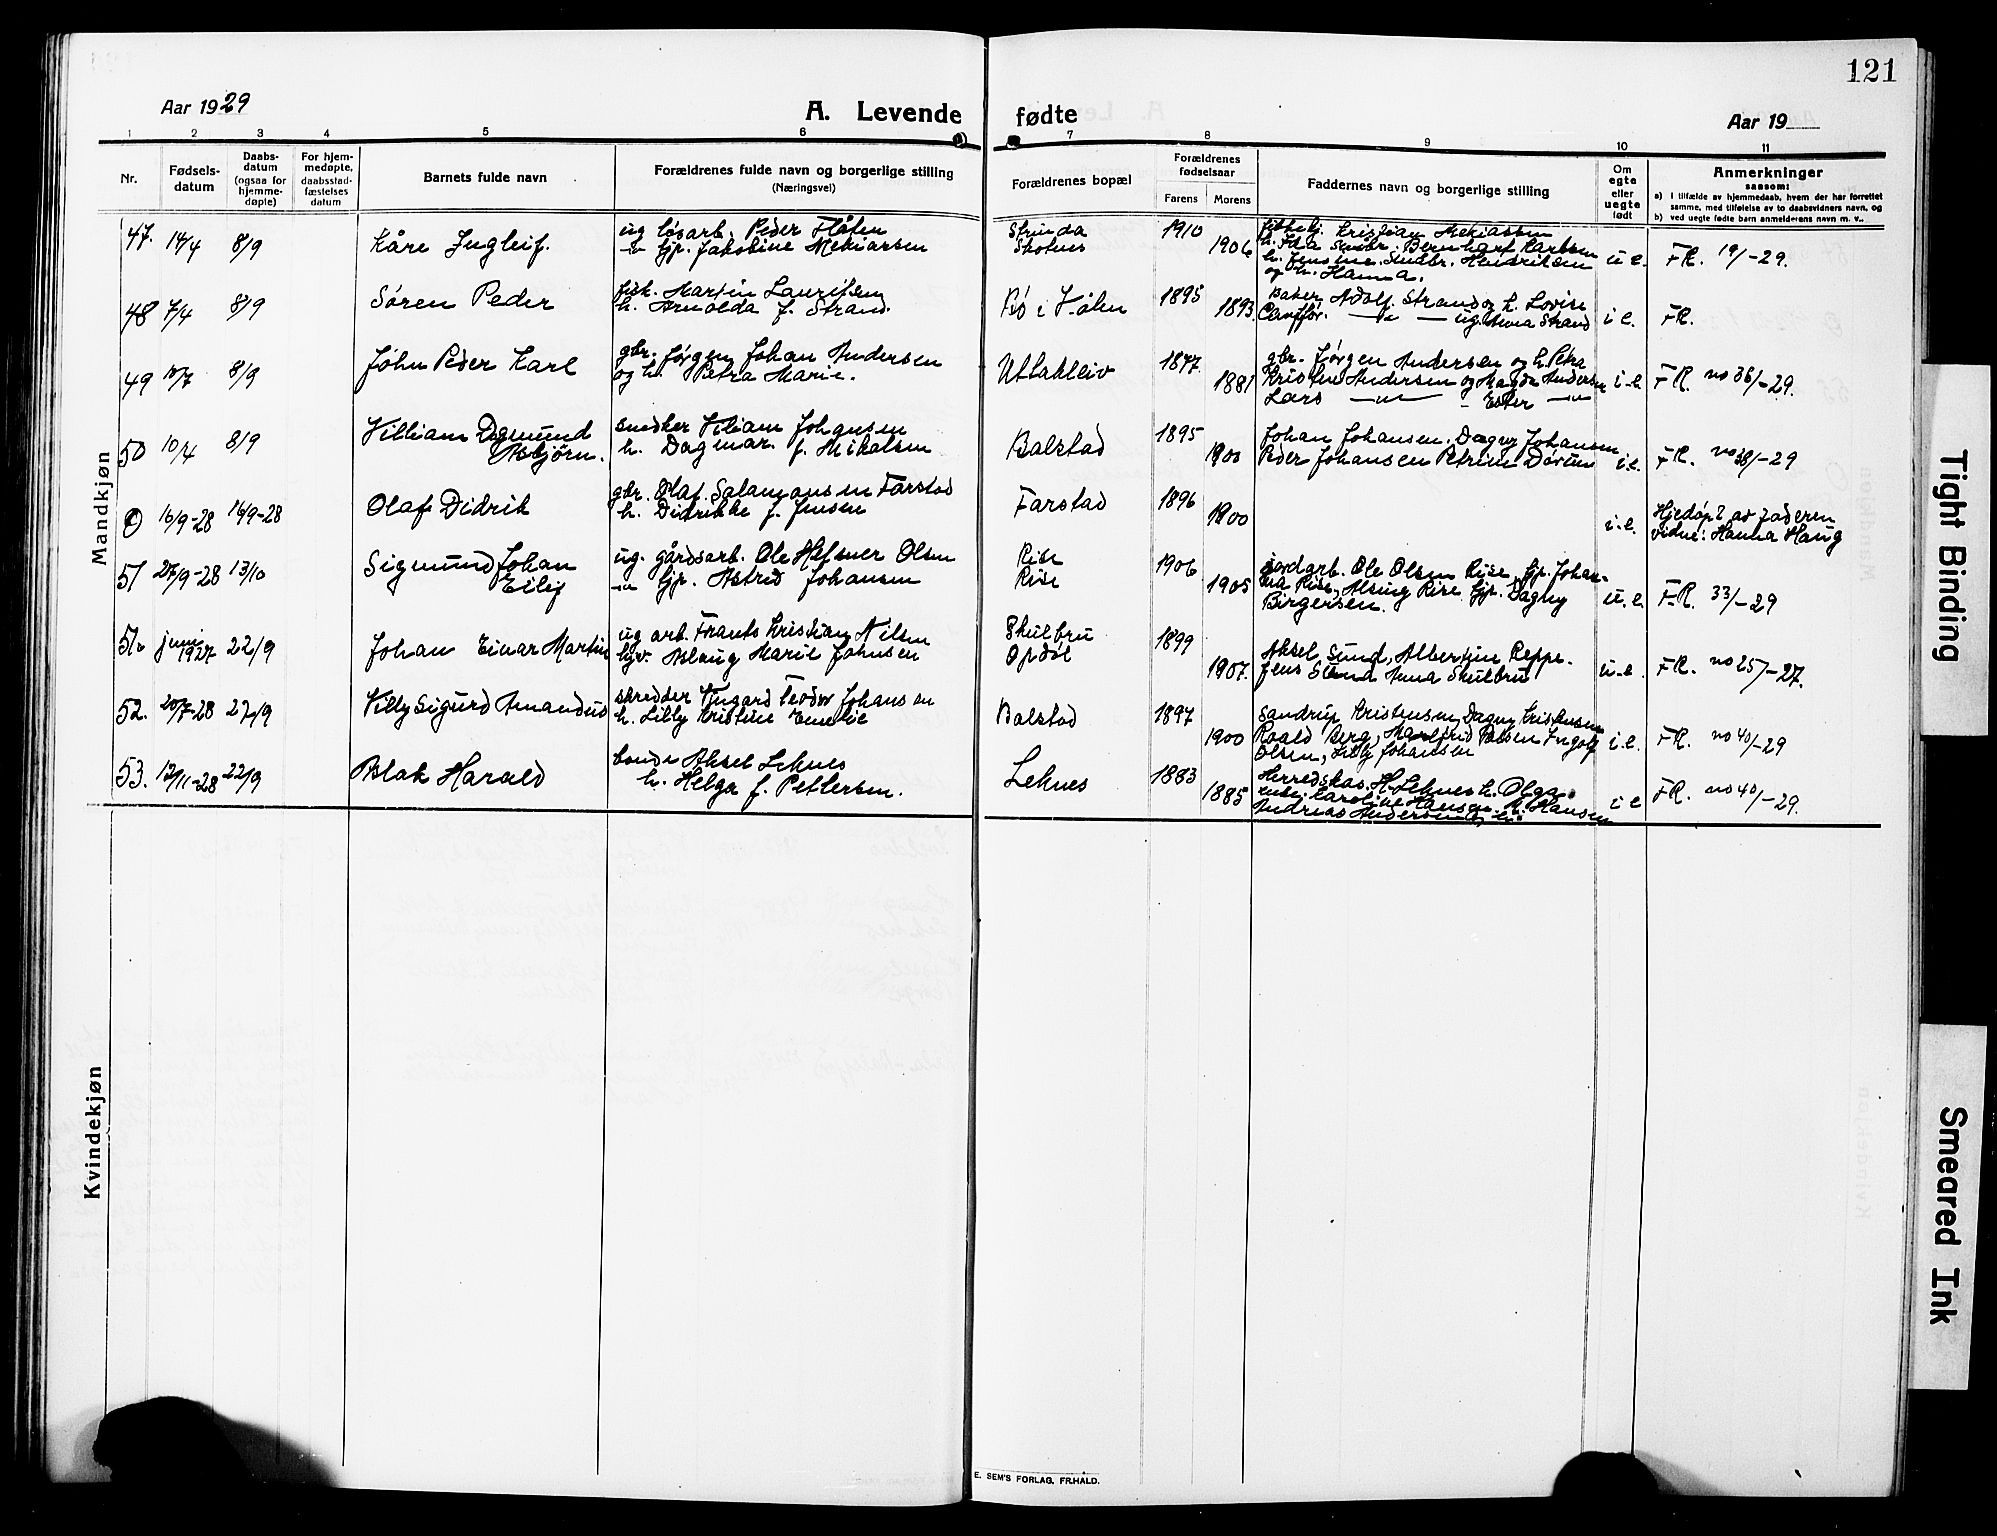 121
Aar 1929
A. Levende fødte
Aar 19
1 2 3 4 5 6 7 8 9 10 11
Nr.
Fødsels-
datum
Daabs-
datum
(ogsaa for
hjemme-
døpte)
For hjem-
medøpte,
daabsstad-
fæstelses
datum
Barnets fulde navn
Forældrenes fulde navn og borgerlige stilling
(Næringsvei)
Forældrenes bopæl
Forældrenes
fødselsaar
Farens Morens
Faddernes navn og borgerlige stilling
Om
egte
eller
uegte
født
Anmerkninger
saasom:
a) I tilfælde av hjemmedaab, hvem der har forrettet
samme, med tilføielse av to daabsvidners navn, og
b) ved uegte fødte barn anmelderens navn m. v..
Mandkjøn
47. 14/4 8/9 Kåre Ingleif. ug løsarb. Peder Flåten
gjp. Jakobine Mekiassen
Strinda
Skotnes
1910 1906
Kristian Mekiassen
Bernhart Karlsen
h. Jensine, Småbr. Hendriksen
og h. Hanna.
u e. F.R. 19/-29.
48 7/4 8/9 Søren Peder fisk. Martin Lauritsen
h. Arnolda f. Strand.
Bø i Hølen 1895 1893
Baker Adolf Strand og h. Lovise
ug. Anna Strand
i e. F.R.
49 10/7 8/9 John Peder Karl gbr. Jørgen Johan Andersen
og h. Petra Marie.
Uttakleiv 1877. 1881
gbr. Jørgen Andersen og h. Petra
Kristine Andersen og Magda Andersen
Lars — " — Ester — "
i-e F.R. no 36/-29.
50 10/4 8/9 Villiam Dagmund
Asbjørn.
snedker Viliam Johansen
h. Dagmar f. Mikalsen
Balstad 1895 1900
Johan Johansen, Dagny Johansen
Peder Johansen Petrine
i.e. F.R. no 38/-29
0 16/9-28 16/9-28 Olaf Didrik gbr. Olaf Salamonsen Farstad
h. Didrikke f. Jensen
Farstad 1896 1900
i.e. Hjedøpt av faderen
vidne: Hanna Haug
51 27/9-28 13/10 Sigmund Johan
Eilif
ug. gårdsarb. Ole Hefsner Olsen
— " gjp. Astrid Johansen
Rise
Rise
1906 1905
jordarb. Ole Olsen Rise, gjp. Johan-
na Rise, Rise gjp. Dagny
Birgersen.
u. e. F.R. 33/-29
51b juni 1927 22/9 Johan Einar Martin ug arb. Frants Kristian Nilsen
Aslaug Marie Johnsen
Skulbru
Opdøl
1899 1907.
Aksel Sund, Albertine Reppe.
Jens Anna Skulbru
u-e F.R. no 25/-27.
52. 20/7-28 22/9 Villy Sigurd Amandus skredder Yngard Teodor Johansen
h. Lilly Kristine Emelie
Balstad 1897 1900
Sandrup Kristensen, Dagny Kristensen
Roald Berg, Ingolf
Olsen, Lilly Johansen
i.e. F.R. no 40/-29
53. 12/11-28 22/9 Aslak Harald bonde Aksel Leknes
h. Helga f. Pettersen.
Leknes 1883 1885
Herredskas. H. Leknes h. Olga
enke Karoline Hansen, Hansen
Andreas Andersen
i e F.R. no 40/-29.
Kvindekjøn
E. SEM'S FORLAG, FR.HALD.
Tight Binding
Smeared Ink